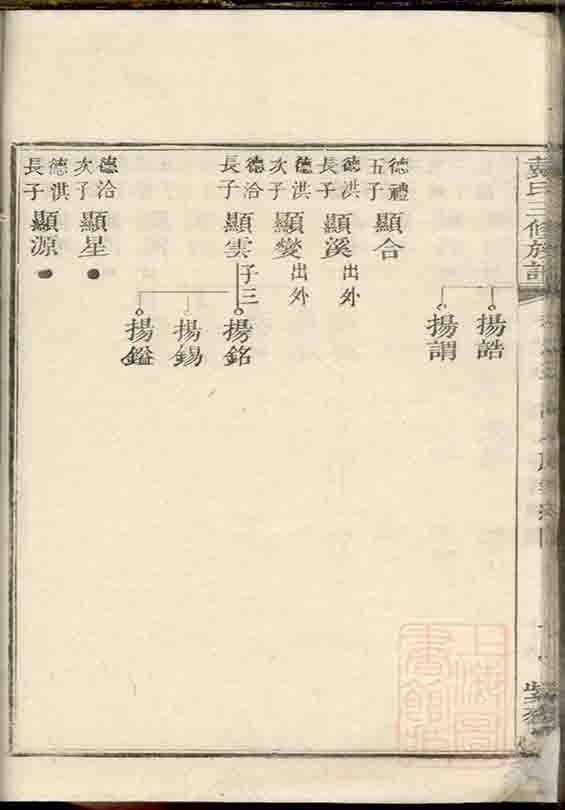 氏三修族譜
揚誥
揚謂
德禮
五子
顯合
德洪
長子
顯溪
出外
德洽
次子
顯燮
出外
德洽
長子
顯雲
子三
揚銘
揚錫
揚鎰
德洽
次子
顯星
德洪
長子
顯源
上海圖書館藏